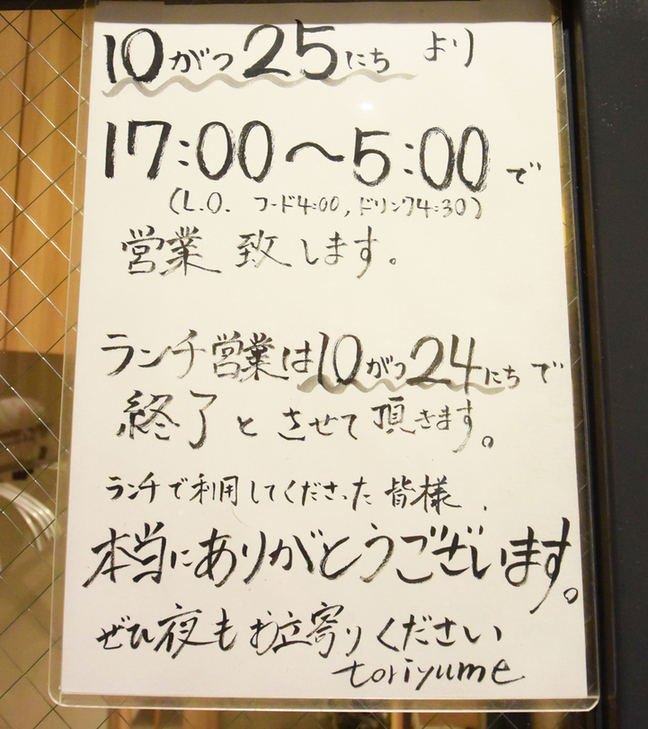 10がつ25にち より
17:00〜5:00で
(L.O. フード4:00,ドリンク4:30)
営業 致します。
ランチ営業は10がつ24にちで
終了とさせて頂きます。
ランチで利用してくださった皆様、
本当にありがとうございます。
ぜひ夜もお立寄りください
toriyume